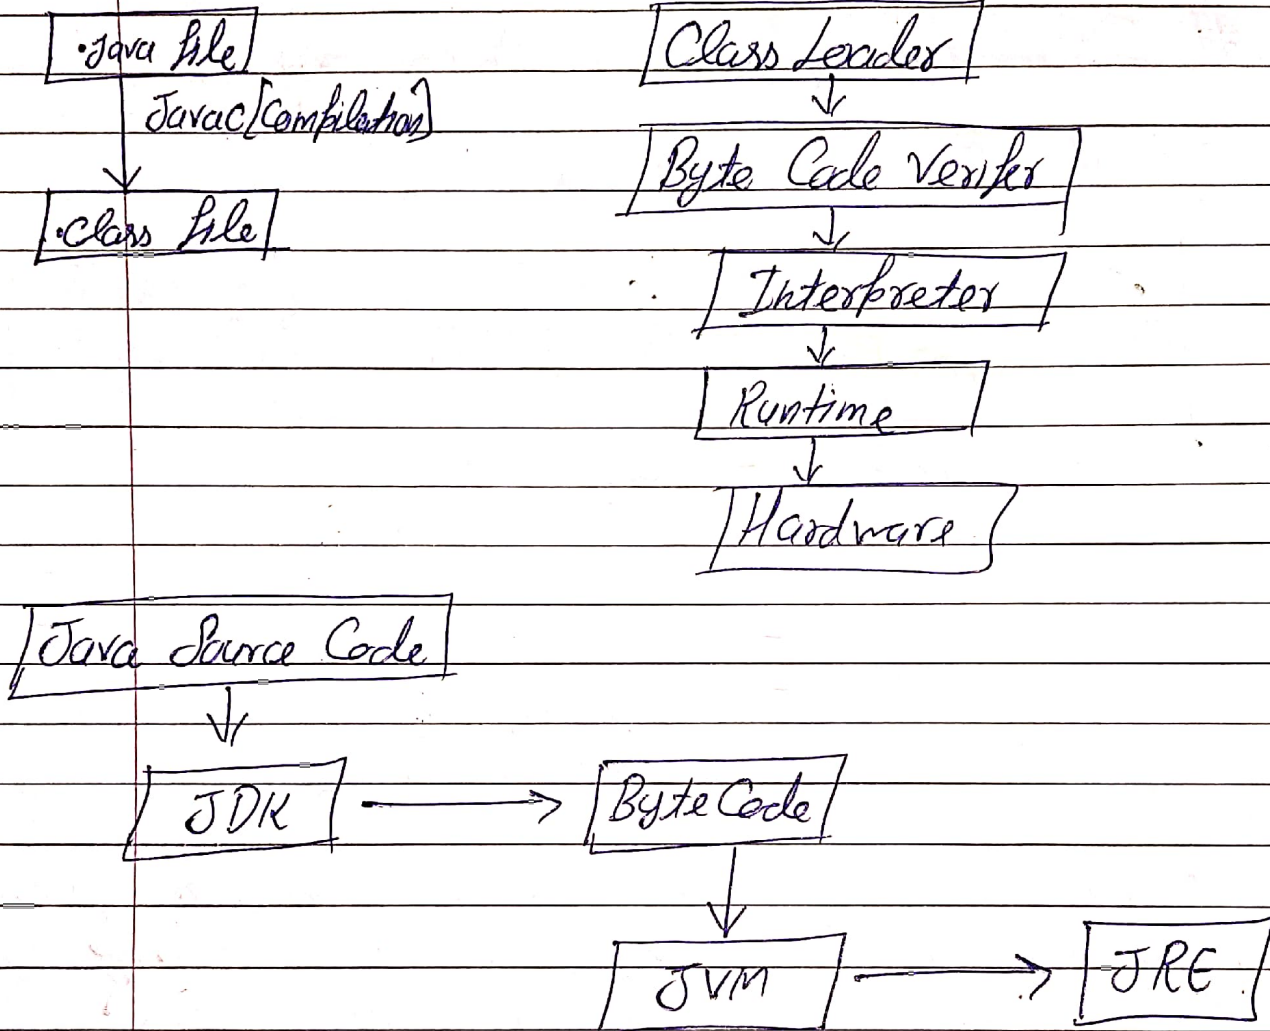 .java file
Javac [Compilation]
.class file
Class Loader
Byte Code Verifer
Interpreter
Runtime
Hardware
Java Source Code
JDK
ByteCode
JVM
JRE